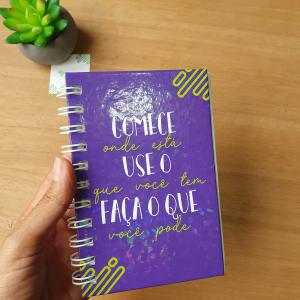 COMECE
onde está
USE O
que você tem
FAÇA O QUE
você pode